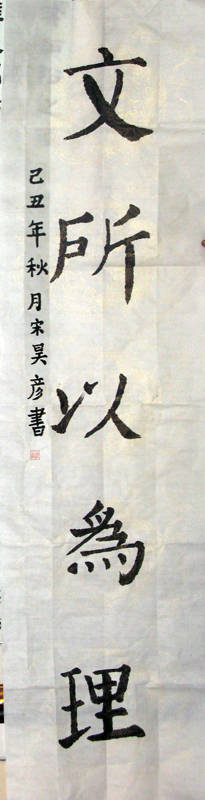 文所以為理
己丑年秋月宋昊彦書